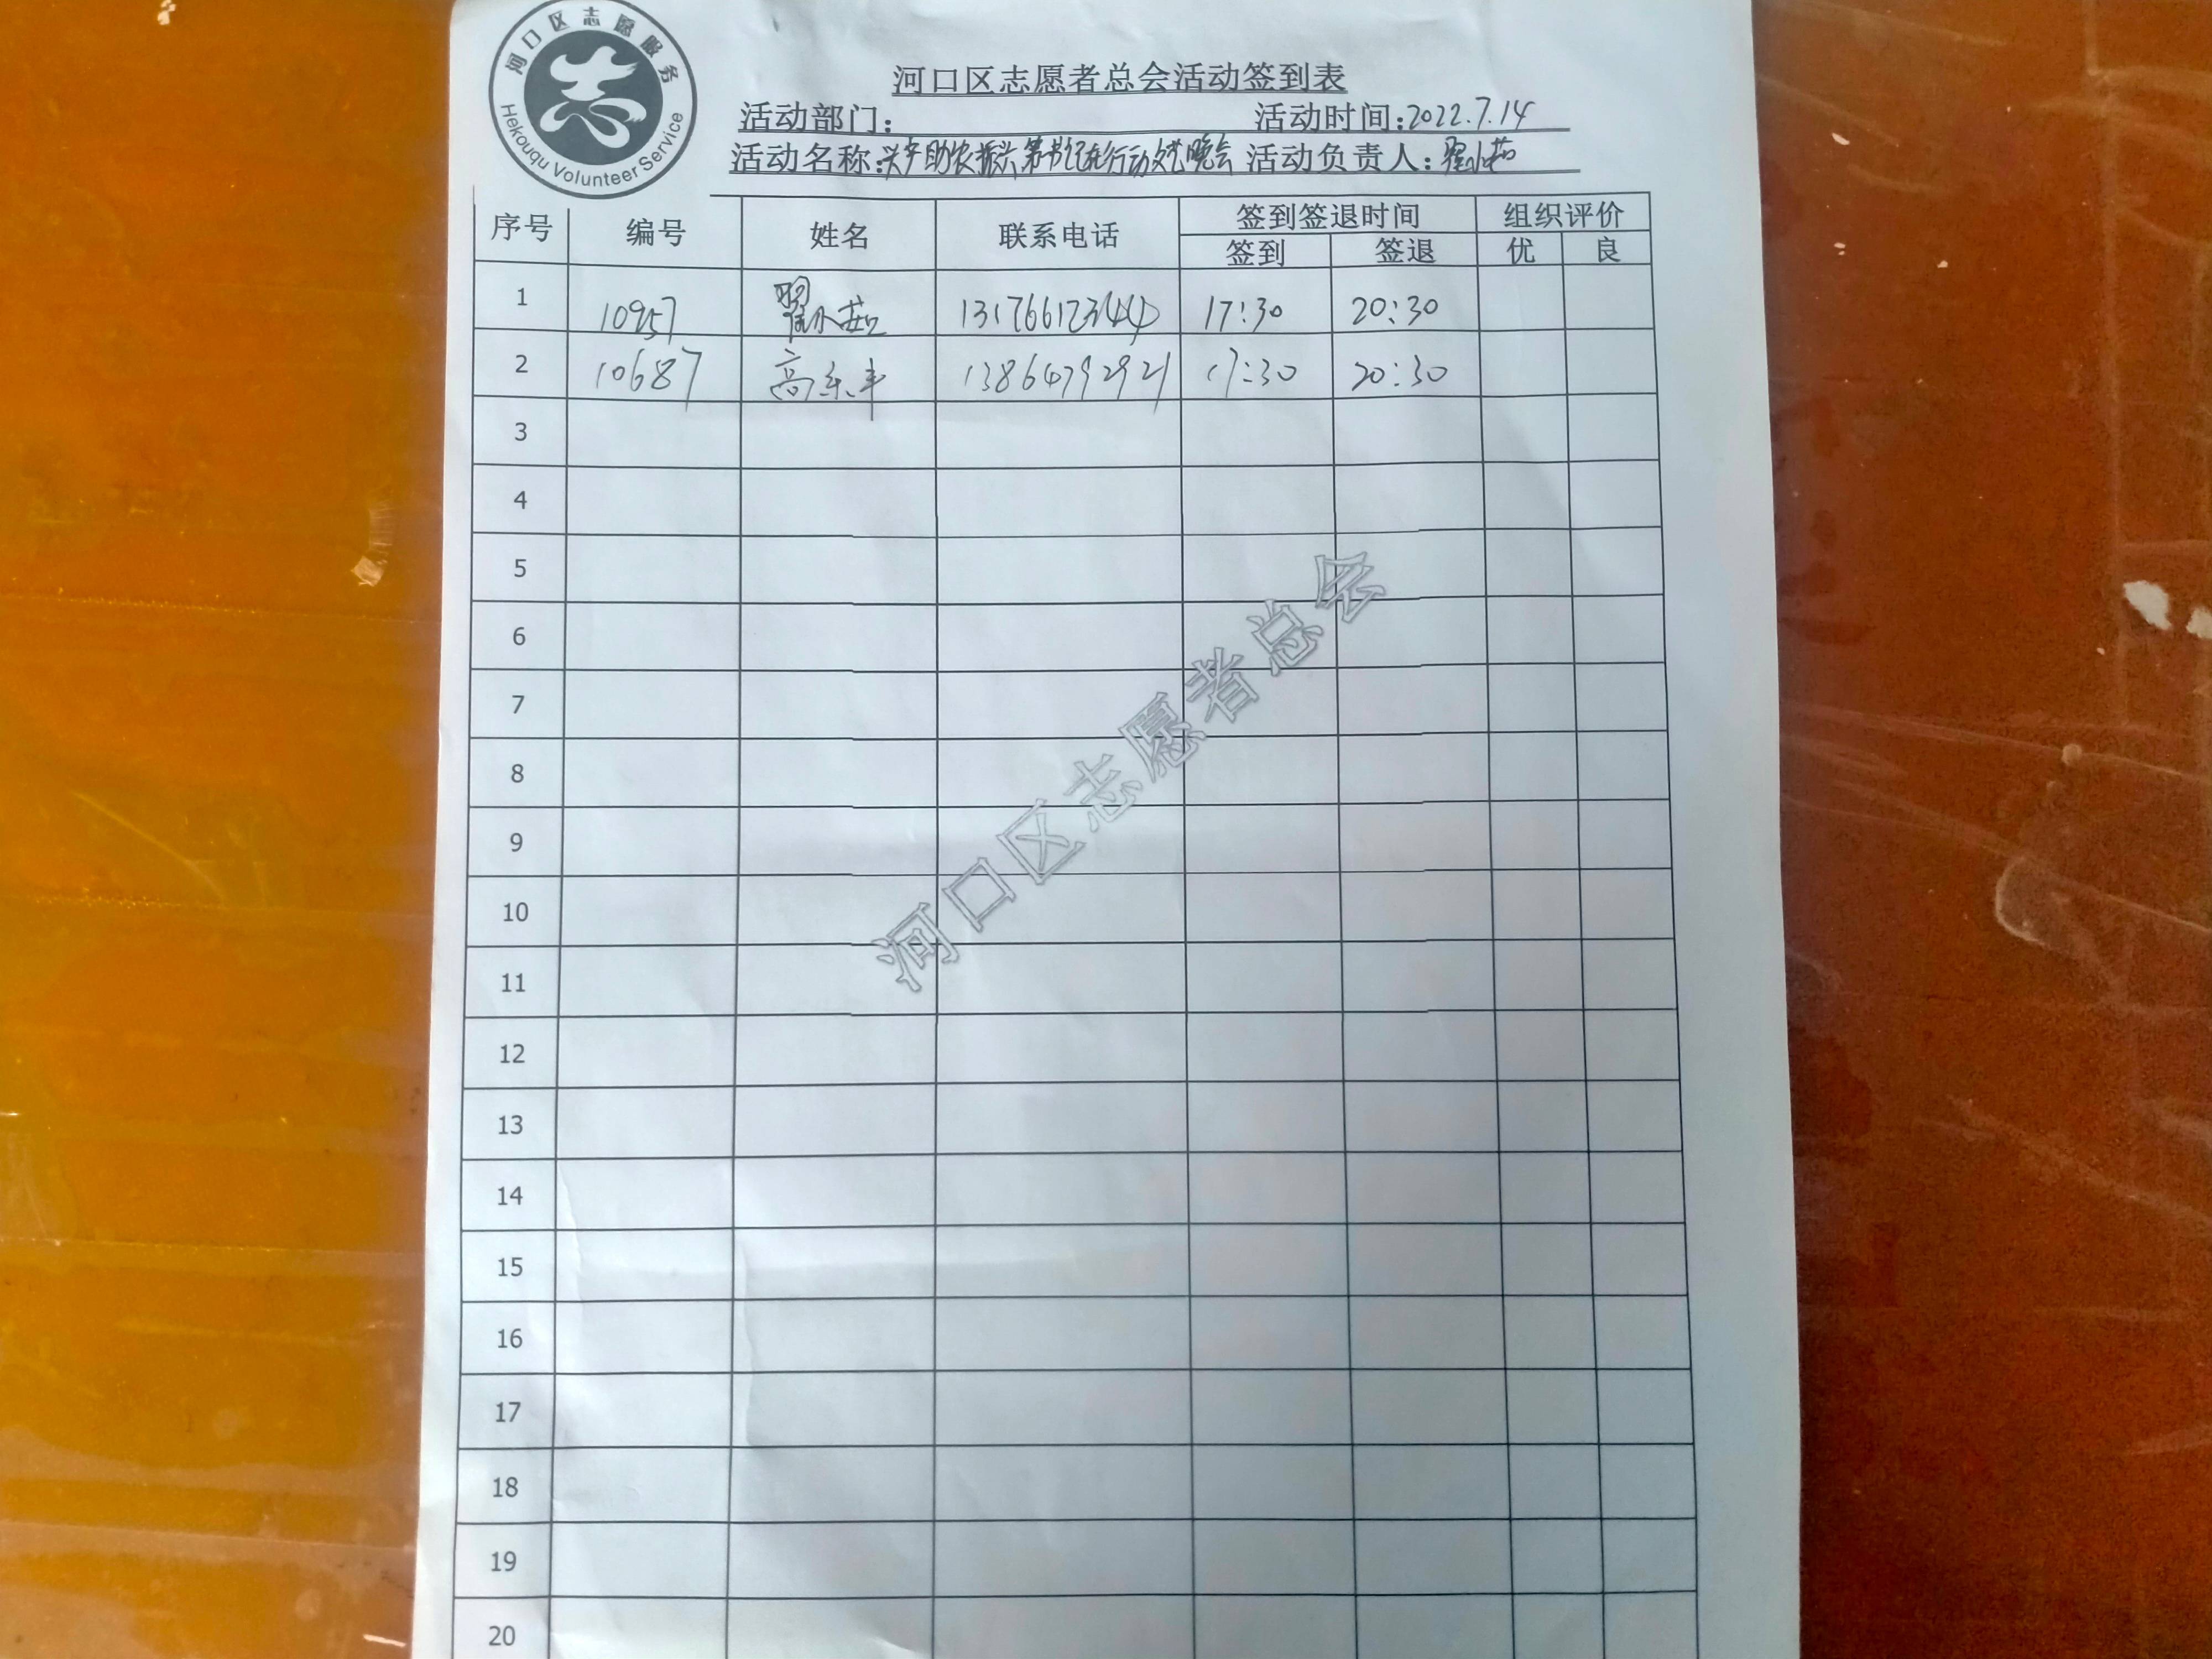 河口区志愿服务
Hekouqu Volunteer Service
河口区志愿者总会活动签到表
活动部门： 活动时间:2022.7.14
活动名称:兴产助农振兴 第书记在行动文艺晚会 活动负责人：翟小茹
序号 编号 姓名 联系电话 签到签退时间 组织评价
签到 签退 优 良
1 10957 翟小茹 13176612344 17:30 20:30
2 10687 高 13864792921 17:30 20:30
3
4
5
6
7
8
9
10
11
12
13
14
15
16
17
18
19
20
河口区志愿者总会